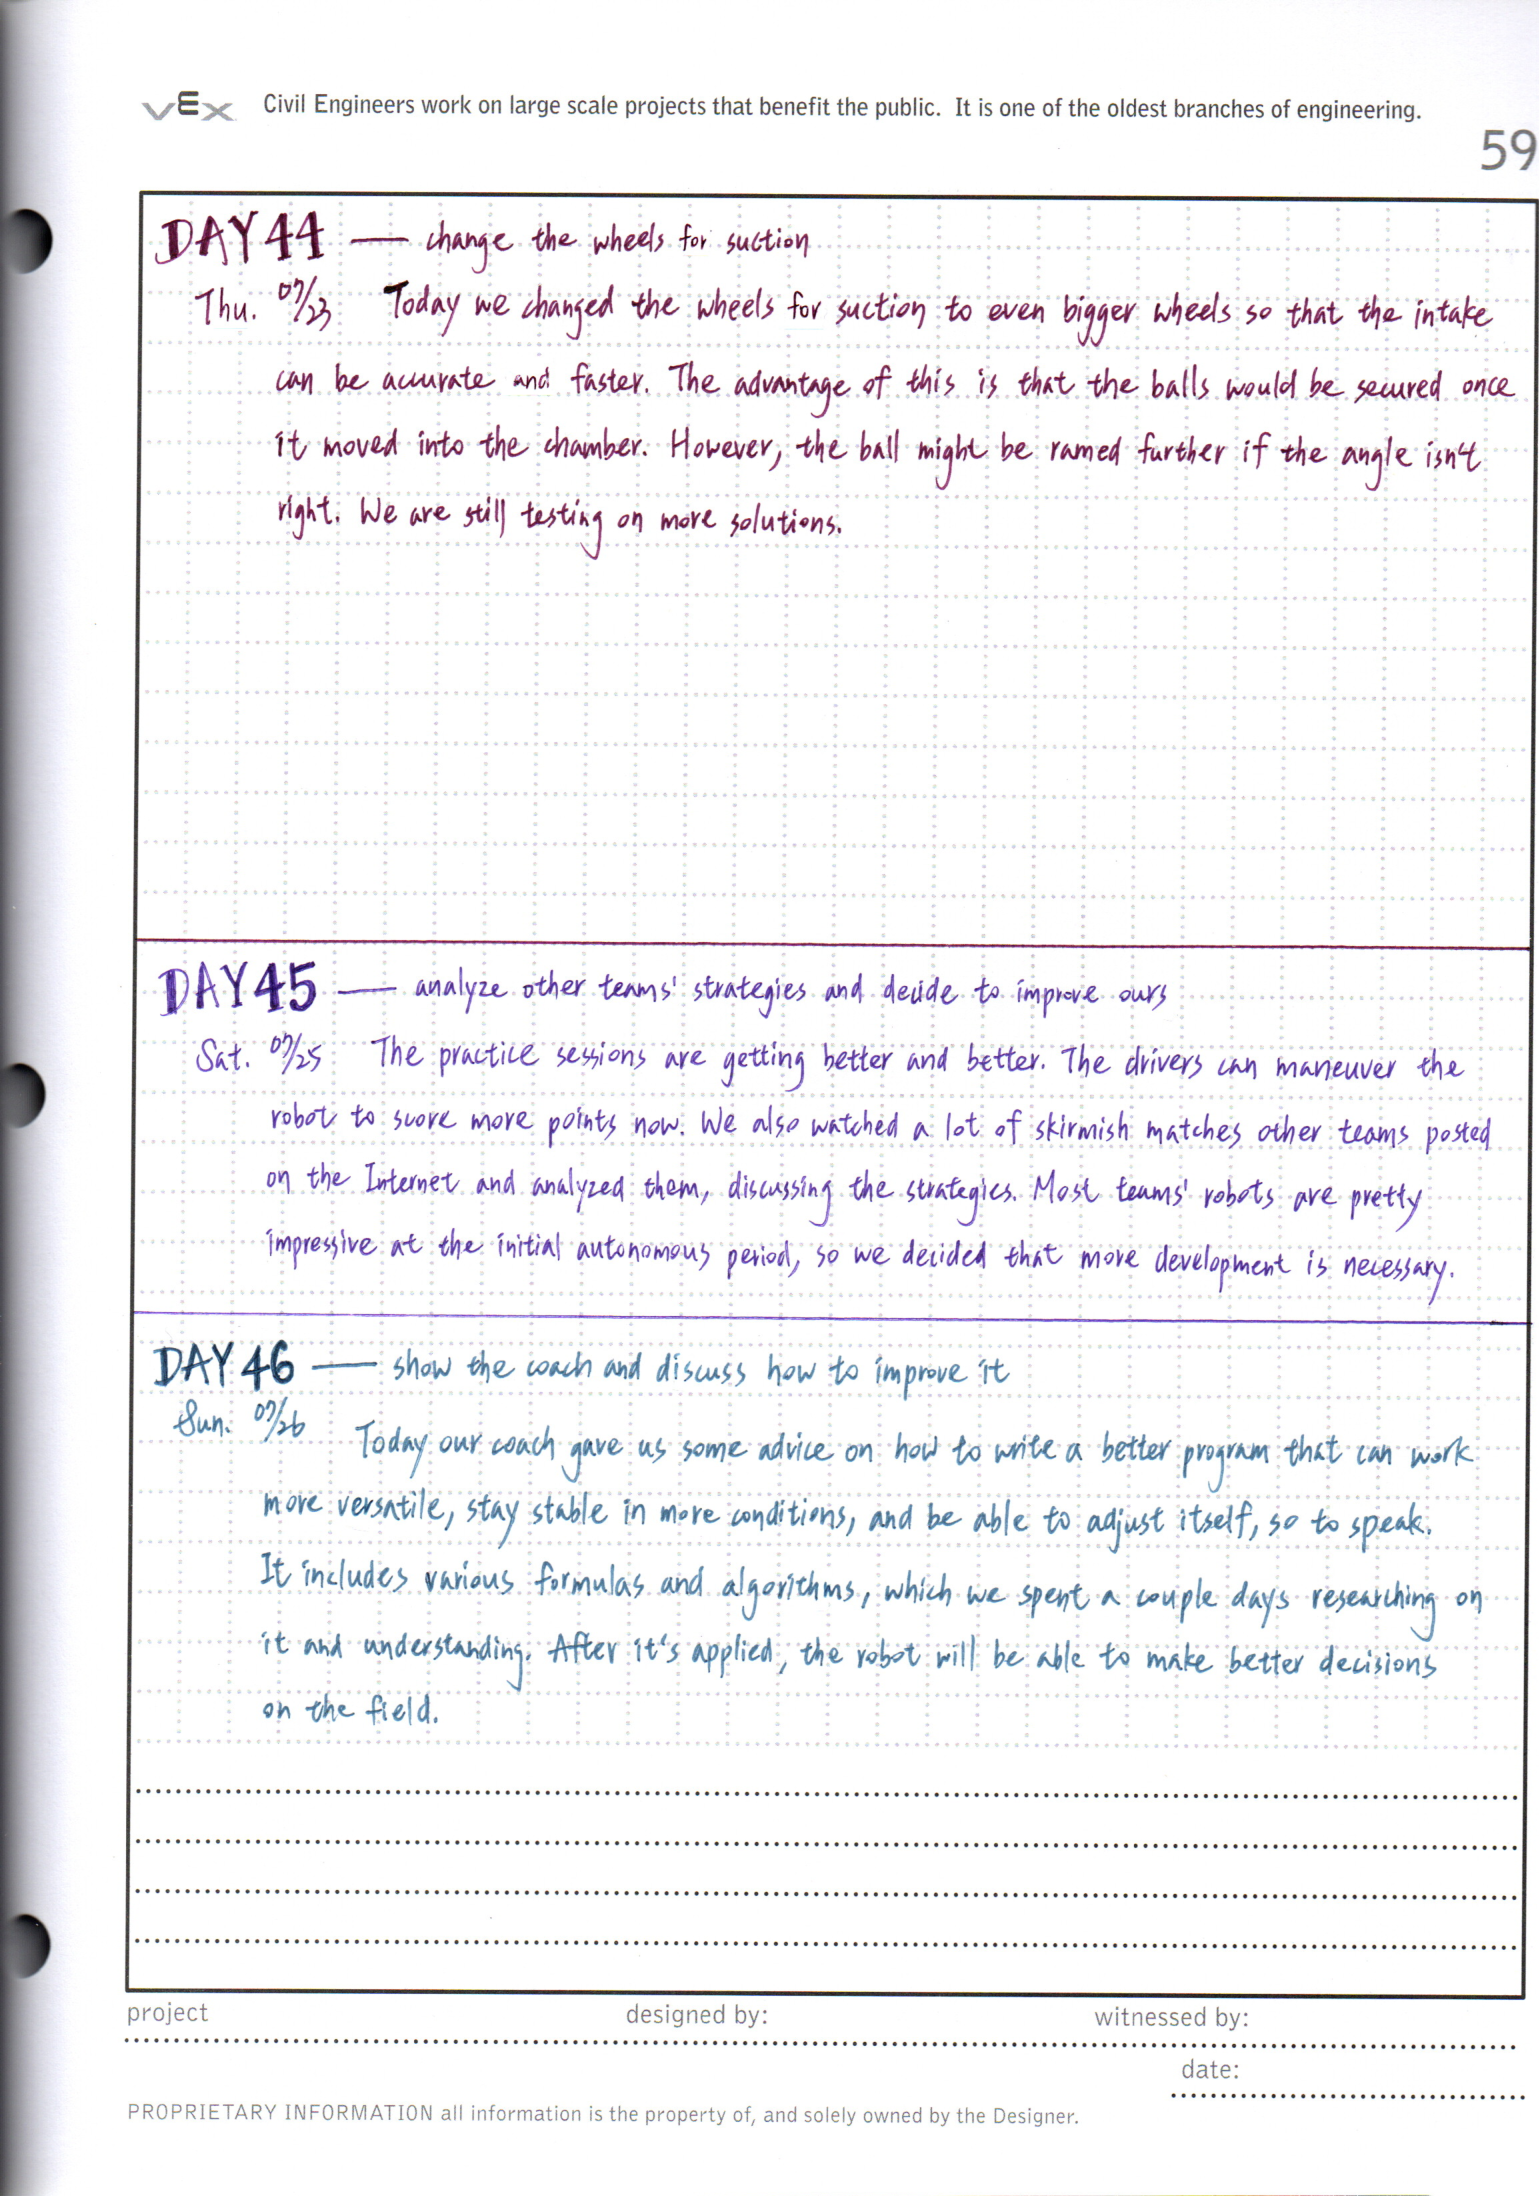 VEX Civil Engineers work on large scale projects that benefit the public. It is one of the oldest branches of engineering.
59
DAY 44 — change the wheels for suction
Thu. 07/23 Today we changed the wheels for suction to even bigger wheels so that the intake
can be accurate and faster. The advantage of this is that the balls would be secured once
it moved into the chamber. However, the ball might be ramed further if the angle isn't
right. We are still testing on more solutions.
DAY 45 — analyze other teams' strategies and decide to improve ours
Sat. 07/25 The practice sessions are getting better and better. The drivers can maneuver the
robot to score more points now. We also watched a lot of skirmish matches other teams posted
on the Internet and analyzed them, discussing the strategies. Most teams' robots are pretty
impressive at the initial autonomous period, so we decided that more development is necessary.
DAY 46 — show the coach and discuss how to improve it
Sun. 07/26 Today our coach gave us some advice on how to write a better program that can work
more versatile, stay stable in more conditions, and be able to adjust itself, so to speak.
It includes various formulas and algorithms, which we spent a couple days researching on
it and understanding. After it's applied, the robot will be able to make better decisions
on the field.
project designed by: witnessed by:
date:
PROPRIETARY INFORMATION all information is the property of, and solely owned by the Designer.